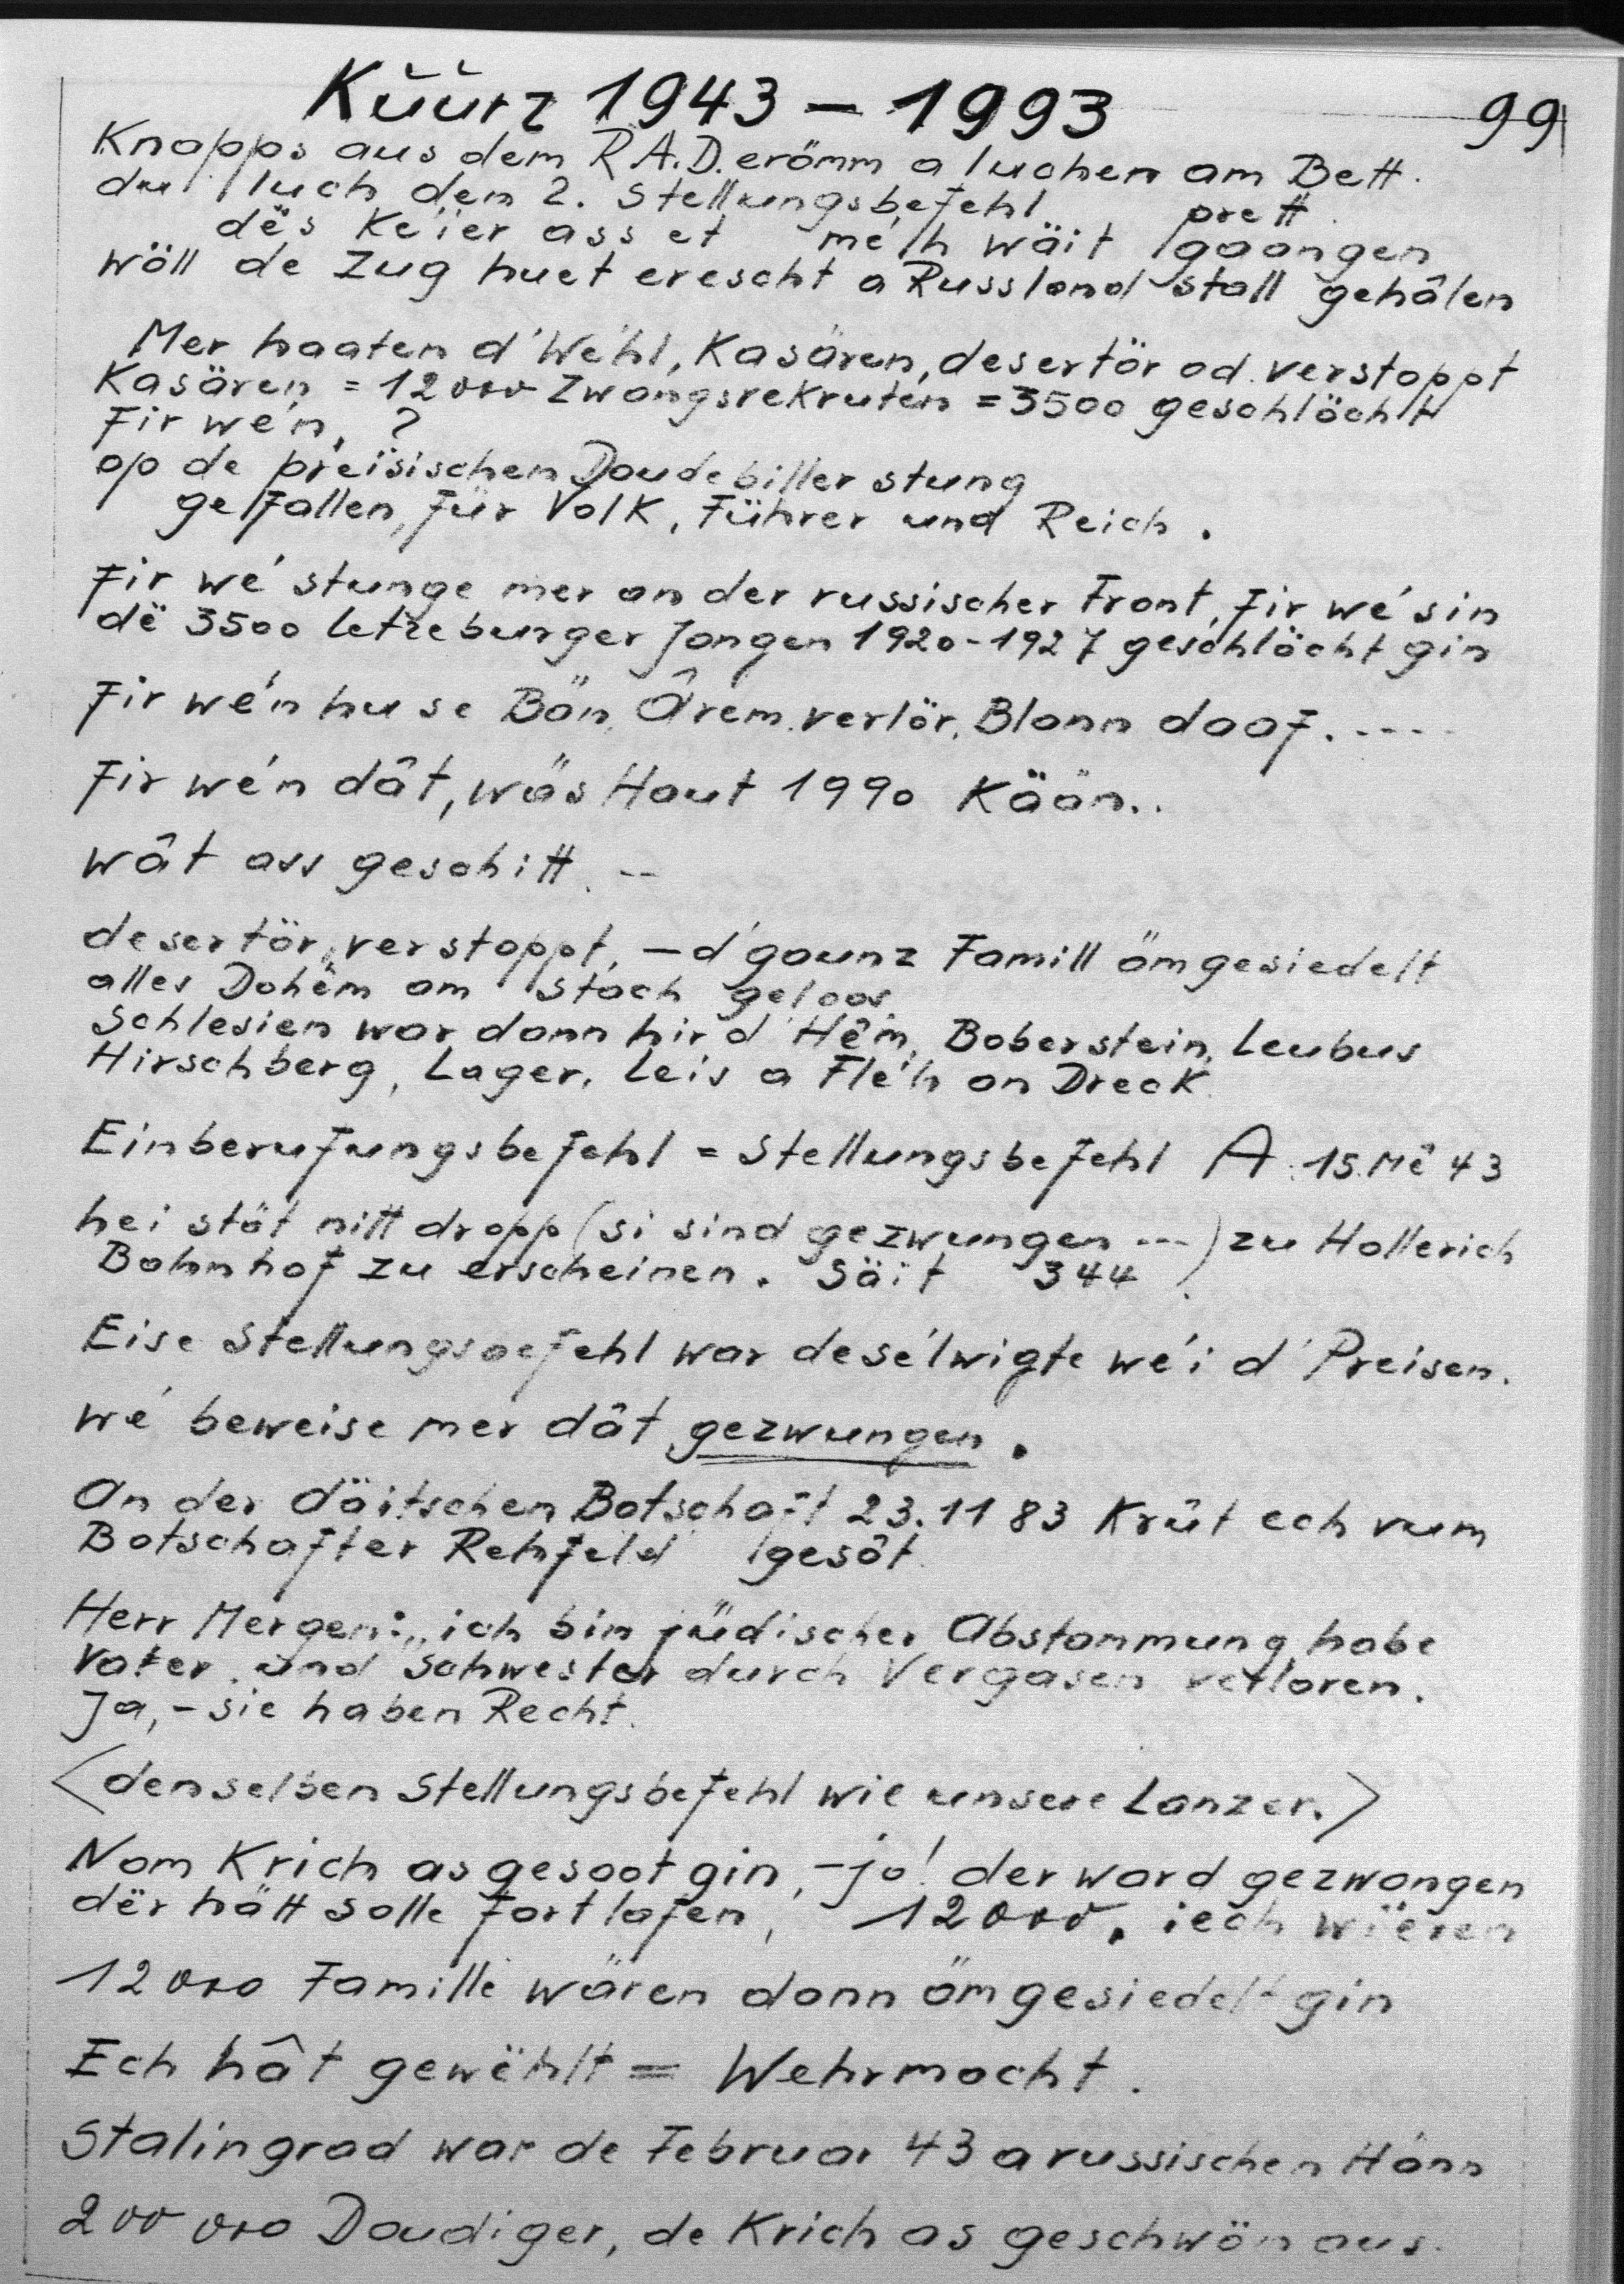 Küürz 1943 – 1993
99
Knapps aus dem R.A.D. erömm a luchen am Bett.
du luch den 2. Stellungsbefehl prett.
dës Keïer ass et méh wäit gaangen
wöll de Zug huet erescht a Russland stall gehâlen
Mer haaten d'Wéhl, Kasären, desertör od. verstoppt
Kasären = 12000 Zwangsrekruten = 3500 geschlöcht
Fir wén, ?
op de preïsischen Doudebiller stung
gefallen „für Volk, Führer und Reich.
Fir wé stunge mer an der russischer Front, fir wé sin
dë 3500 letzeburger Jongen 1920-1927 geschlöcht gin
Fir wén hu se Bän, Ârem verlör, Blann daaf.....
Fir wén dât, wäs Haut 1990 Kään..
wât ass geschitt. --
desertör, verstoppt, – d'gaunz Famill ömgesiedelt
alles Dohêm am Stach geloos.
Schlesien war dann hir d'Hêm, Boberstein, Leubus
Hirschberg, Lager, Leis a Fléh an Dreck.
Einberufungsbefehl = Stellungsbefehl A. 15. Mê 43
hei stät nitt dropp (si sind gezwungen ---) zu Hollerich
Bahnhof zu erscheinen. Säit 344
Eise Stellungsbefehl war desélwigte wéi d'Preisen.
wé beweise mer dât gezwungen.
An der däitschen Botschaft 23.11 83 Krût ech vum
Botschafter Rehfeld gesôt.
Herr Mergen: „ich bin jüdischer Abstammung, habe
Vater und Schwester durch Vergasen verloren.
Ja, – sie haben Recht.
<denselben Stellungsbefehl wie unsere Lanzer.>
Nom Krich as gesoot gin, – jo! der ward gezwangen
dër hätt solle fortlafen, 12000, iech wiëren
12000 Famille wären dann ömgesiedelt gin
Ech hât gewëhlt = Wehrmacht.
Stalingrad war de Februar 43 a russischen Hänn
200 000 Daudiger, de Krich as geschwön aus.